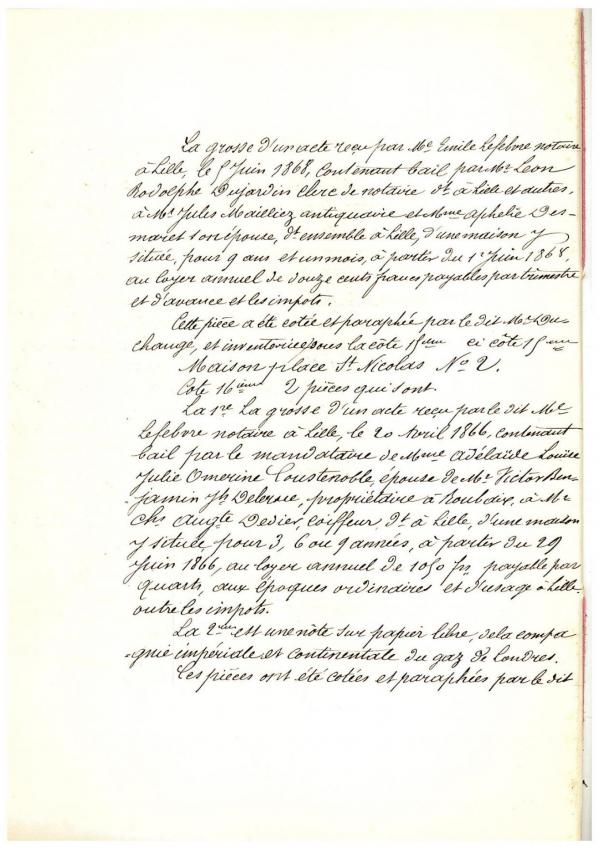 La grosse d'un acte reçu par Me Emile Lefebvre notaire
à Lille, le 5 Juin 1868, contenant bail par Mr Leon
Rodolphe Dujardin clerc de notaire dt à Lille et autres,
à Mr Jules Mailliez antiquaire et Mme Aphelie Des-
maret son épouse, dt ensemble à Lille, d'une maison y
située, pour 9 ans et un mois, à partir du 1er Juin 1868,
au loyer annuel de douze cents francs payables par trimestre
et d'avance et les impots.
Cette pièce a été cotée et paraphée par le dit Me Du-
change, et inventoriée sous la côte 15eme ci côte 15eme
Maison place St Nicolas No 2.
Cote 16ieme 2 pièces qui sont.
La 1re La grosse d'un acte reçu par le dit Me
Lefebvre notaire à Lille, le 20 Avril 1866, contenant
bail par le mandataire de Mme Adélaïde Louise
Julie Omerine Coustenoble, épouse de Mr Victor Ben-
jamin Jh propriétaire à Roubaix, à Mr
Chs Augte Devier, coiffeur, dt à Lille, d'une maison
y située pour 3, 6 ou 9 années, à partir du 29
Juin 1866, au loyer annuel de 1050 frs payable par
quarts, aux époques ordinaires et d'usage à Lille
outre les impots.
La 2eme est une nôte sur papier libre, de la compa
-gnie impériale et continentale du gaz de Londres.
Ces pièces ont été cotées et paraphées par le dit